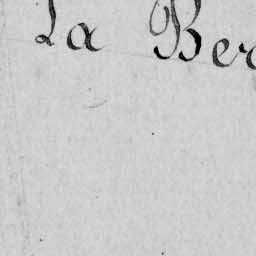 La Ber